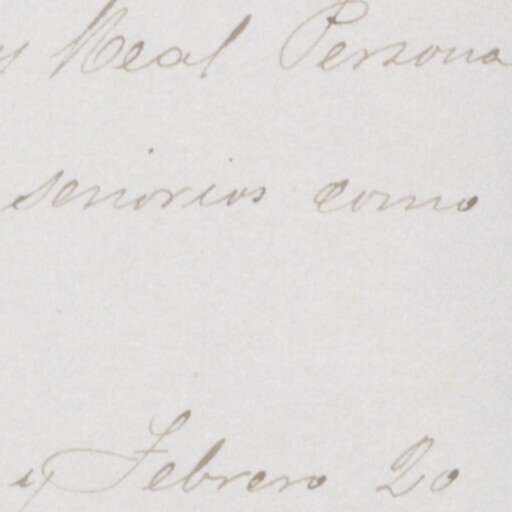 y Real Persona
señorios como
y Febrero 20